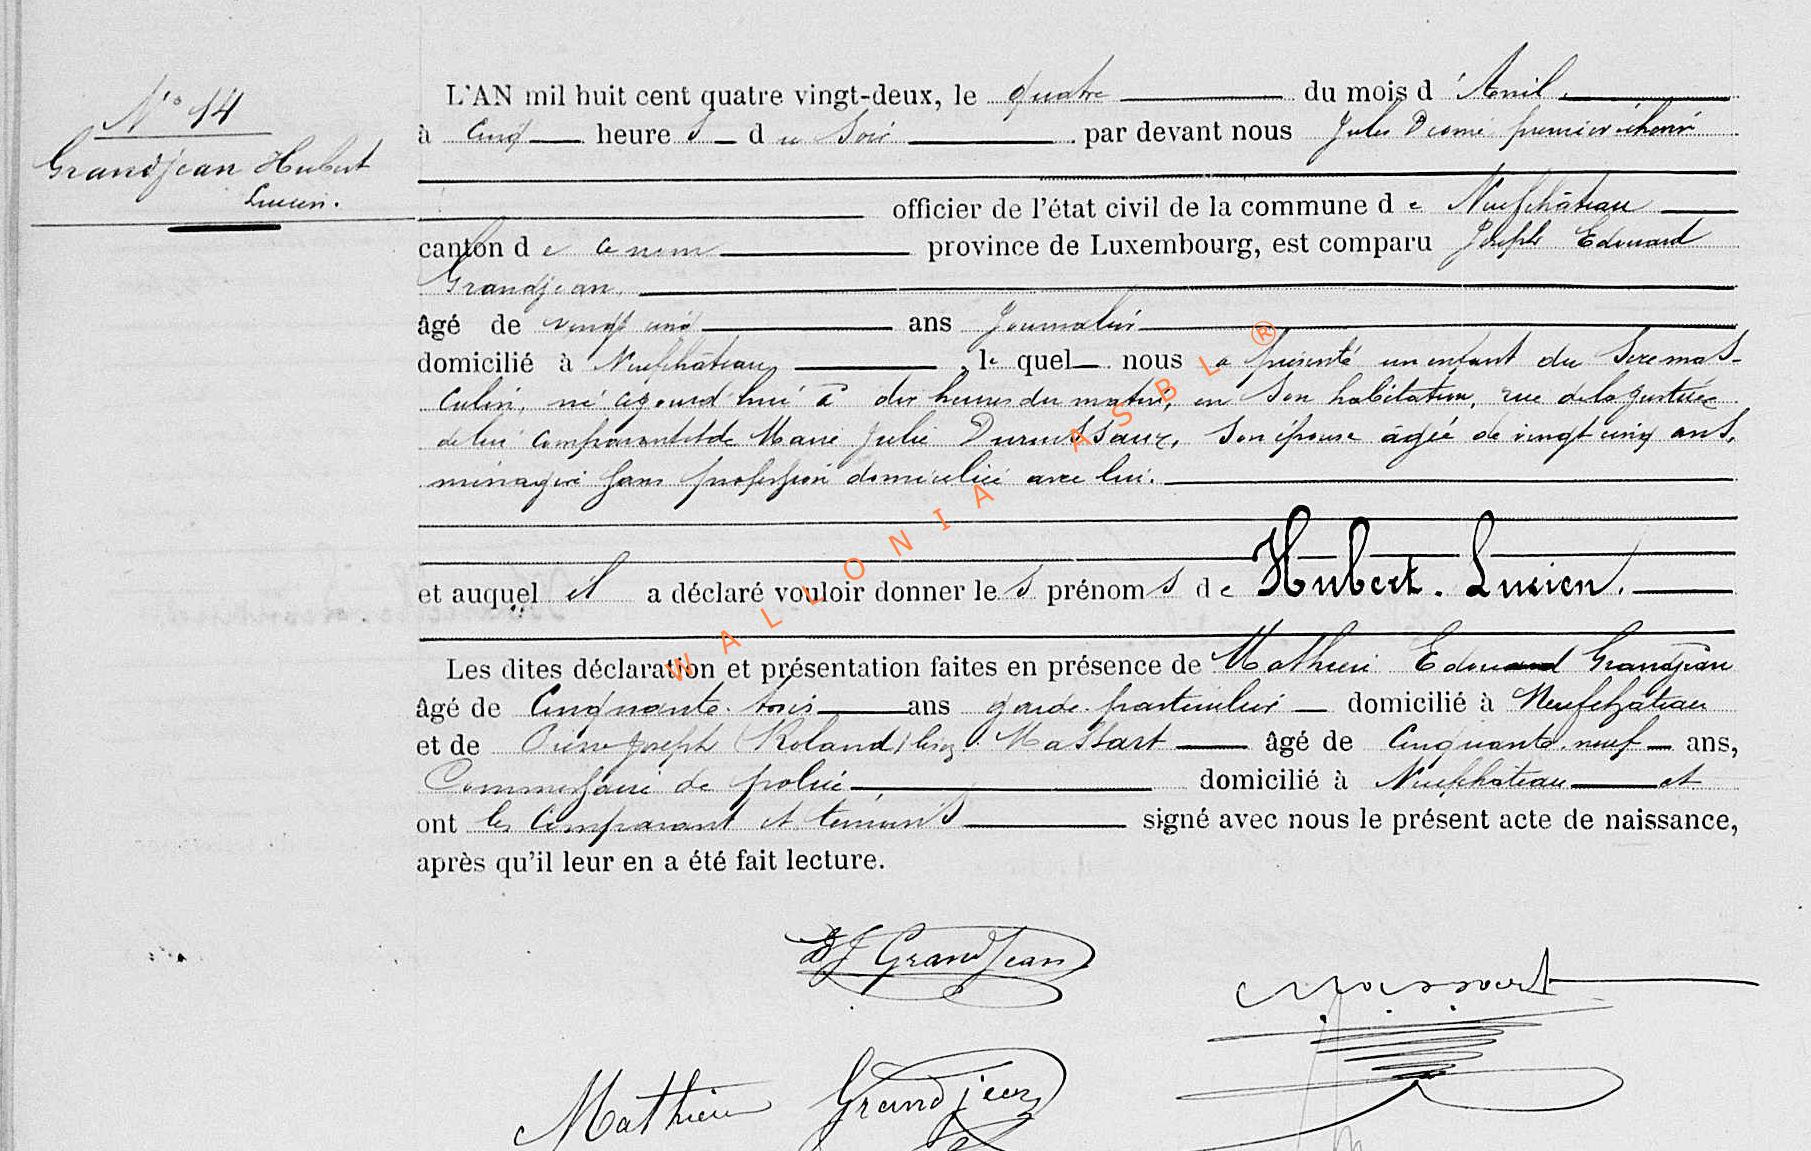 N° 14
Grandjean Hubert
Lucien.
L'AN mil huit cent quatre vingt-deux, le quatre du mois d'Avril.
à cinq heures du soir par devant nous Jules premier échevin
officier de l'état civil de la commune de Neufchâteau
canton de ce nom province de Luxembourg, est comparu Joseph Edouard
Grandjean,
âgé de vingt cinq ans Journalier
domicilié à Neufchâteau, lequel nous a présenté un enfant du sexe mas-
culin, né aujourd'hui à dix heures du matin, en son habitation, rue de la justice
de lui comparant et de Marie Julie son épouse âgée de vingt cinq ans,
ménagère sans profession domiciliée avec lui.
et auquel il a déclaré vouloir donner les prénoms de Hubert. Lucien.
Les dites déclaration et présentation faites en présence de Mathieu Edouard Grandjean
âgé de Cinquante trois ans garde particulier domicilié à Neufchâteau
et de Pierre Joseph (Roland) Massart âgé de Cinquante neuf ans,
Commissaire de police, domicilié à Neufchâteau et
ont les comparant et témoins signé avec nous le présent acte de naissance,
après qu'il leur en a été fait lecture.
GrandJean
Massart
Mathieu Grandjean
WALLONIA ASBL ®